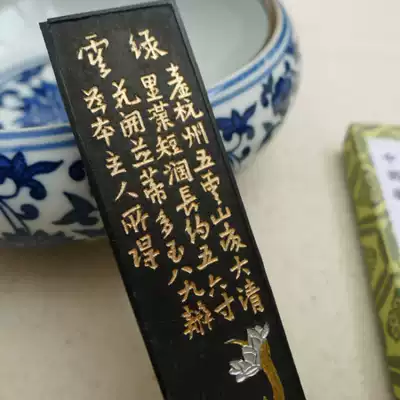 绿雲
產杭州五雲山後大清
里葉短润長約五六寸
花開並蒂多至八九瓣
本主人所得